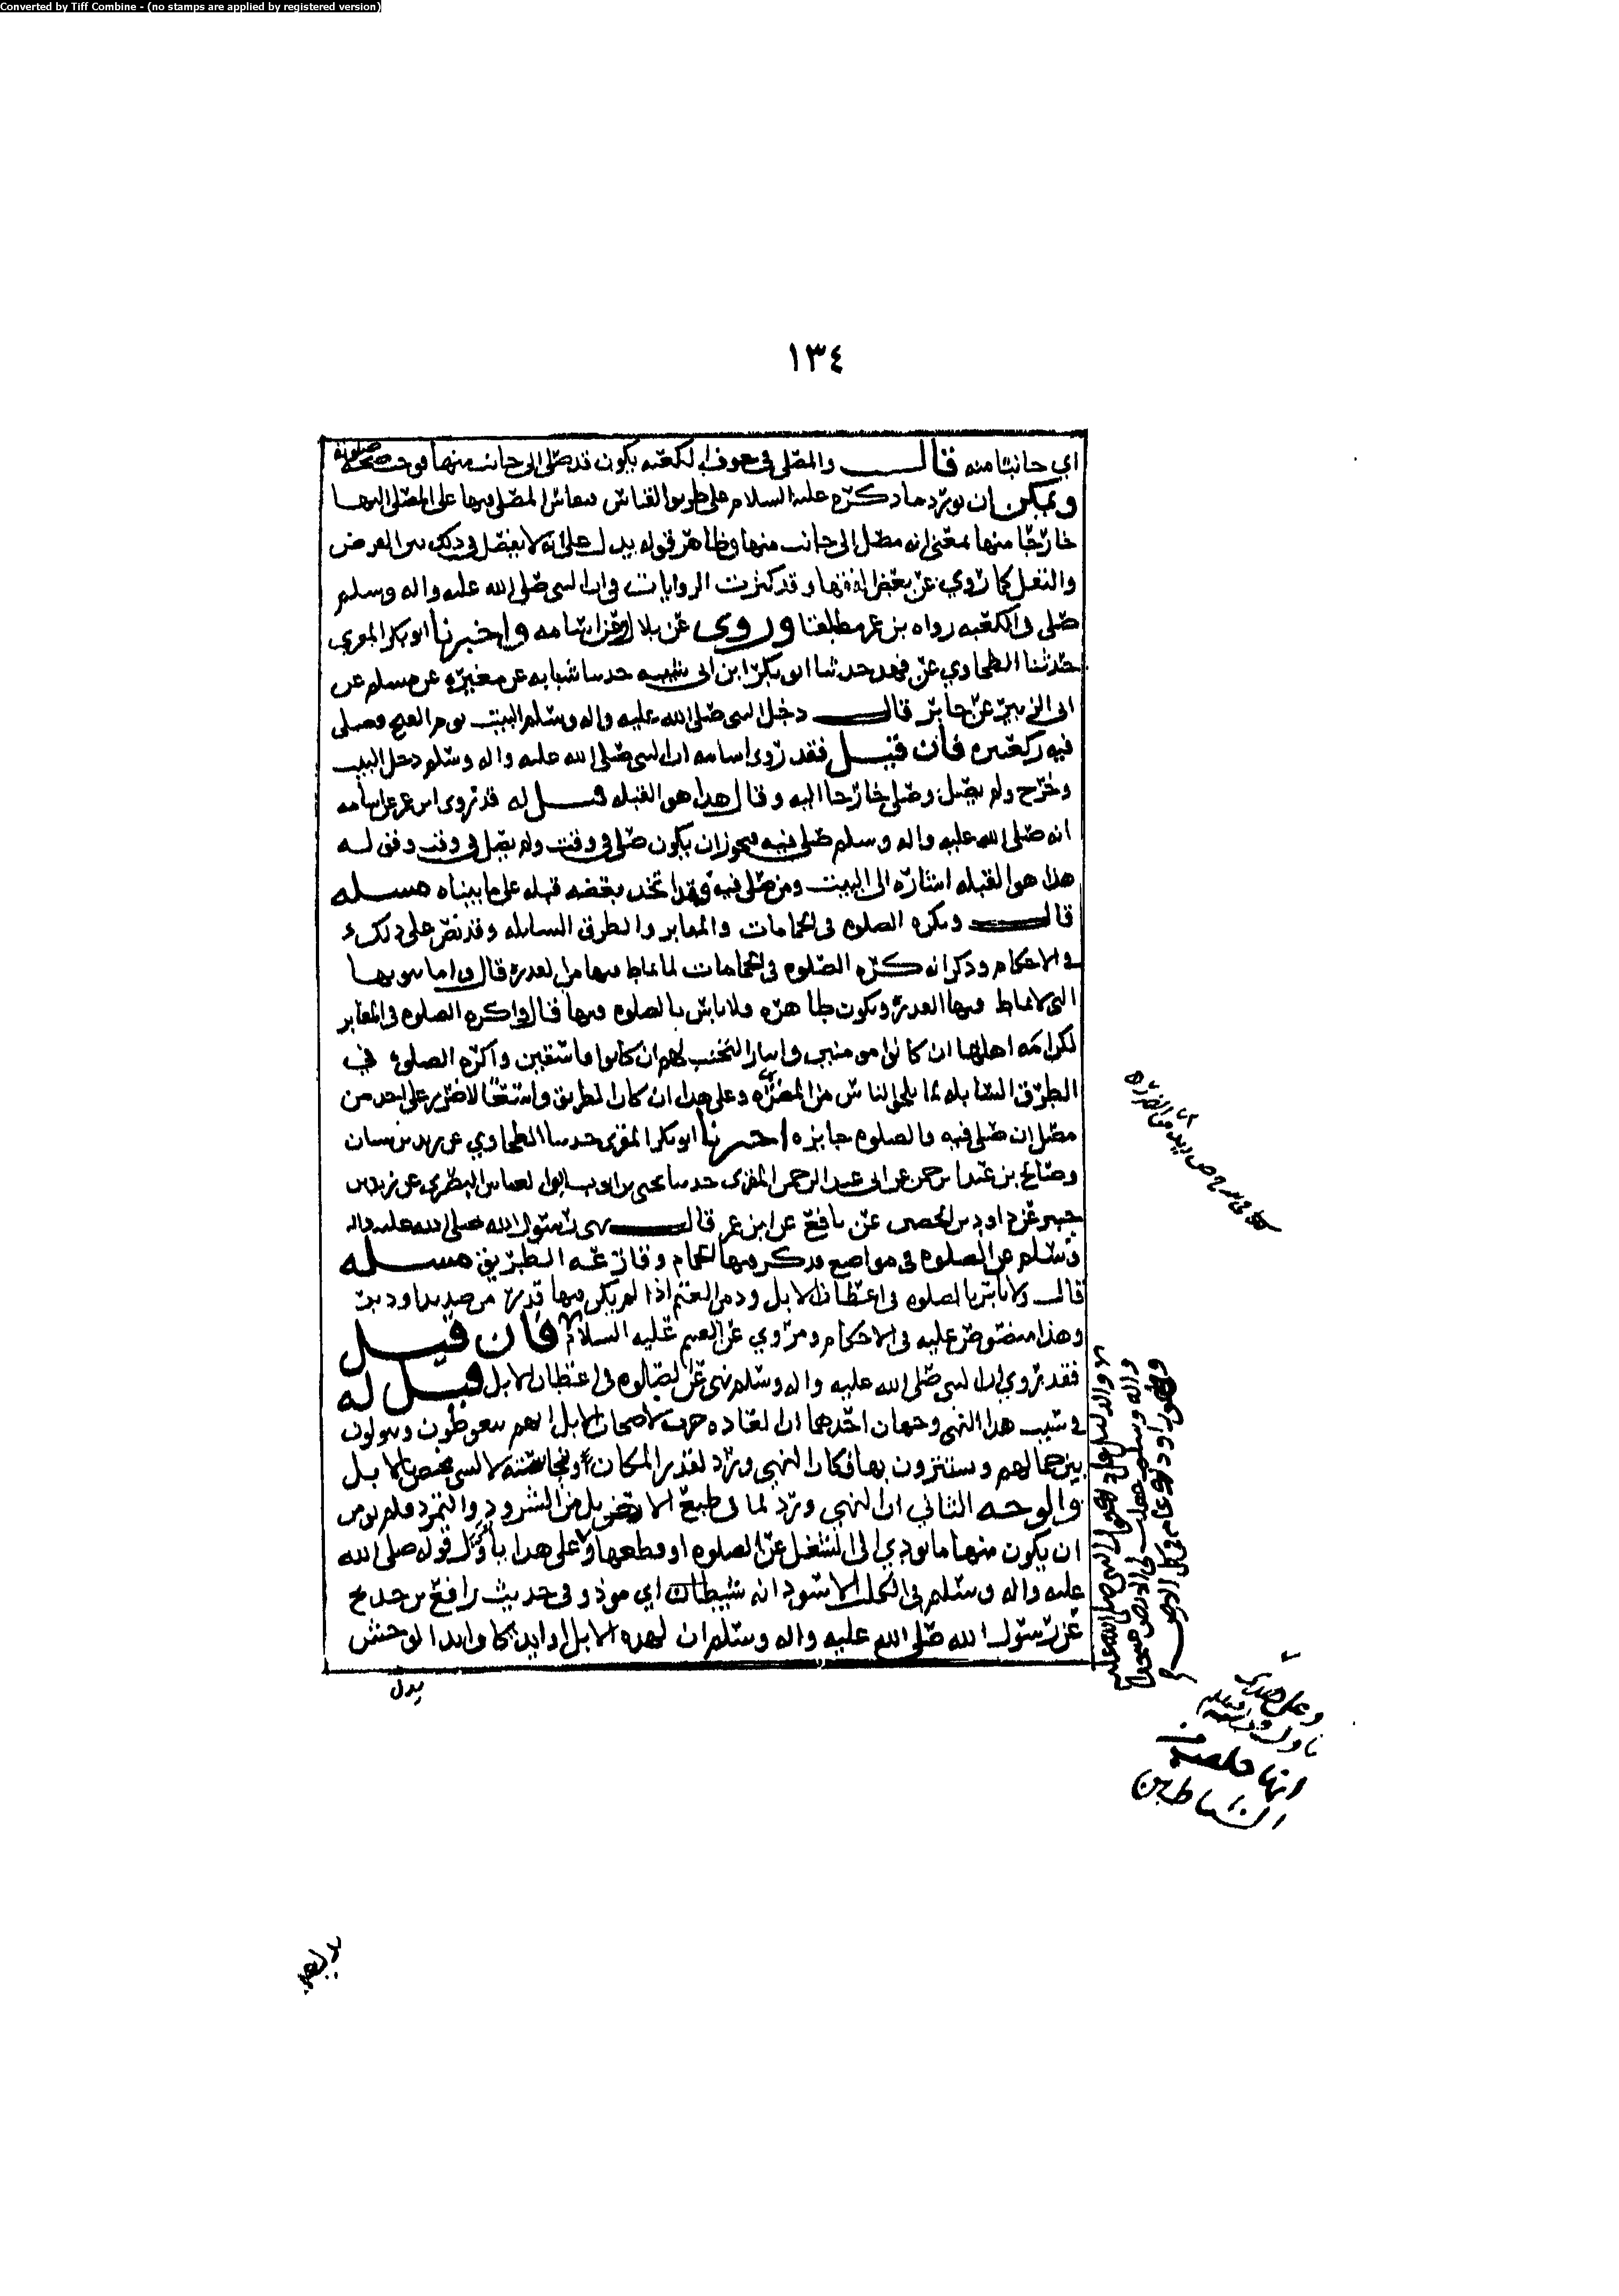 Converted by Tiff Combine - (no stamps are applied by registered version)
١٣٤
اي جانبا منه قال والمصلى في جوف الكعبه يكون قد صلى الى جانب منها فوجب صحه صلوته
ويمكن ان يورد ما ذكره عليه السلام على طريق القياس فيقاس المصلى فيها على المصلى اليها
خارجا منها بمعنى انه مصل الى جانب منها وظاهر قوله يدل على انه لا يفصل في ذلك بين الفرض
والنفل كما روي عن بعضهم وقد كثرت الروايات في ان النبي صلى الله عليه واله وسلم
صلى في الكعبه رواه بن عمر مطلقا وروى عن بلال وعن اسامه واخبرنا ابو بكر المقري
حدثنا الطحاوي عن فهد حدثنا ابو بكر ابن ابي شيبه حدثنا شبابه عن مغيره عن مسلم عن
ابي الزبير عن جابر قال دخل النبي صلى الله عليه واله وسلم البيت يوم الفتح فصلى
فيه ركعتين فان قيل فقد روى اسامه ان النبي صلى الله عليه واله وسلم دخل البيت
وخرج ولم يصل وصلى خارجا اليه وقال هذا هو القبله قيل له قد روى ابن عمر عن اسامه
انه صلى الله عليه واله وسلم صلى فيه فيجوز ان يكون صلى في وقت ولم يصل في وقت وقوله
هذا هو القبله اشاره الى البيت ومن صلى فيه فقد اتخذ بعضه قبله على ما بيناه مسله
قال ويكره الصلوه في الحمامات والمقابر والطرق السابله وقد نص على ذلك
في الاحكام وذكر انه كره الصلوه في الحمامات لما يماط فيها من العذره قال واما بيوتها
التي لا يماط فيها العذره ويكون طاهره فلا باس بالصلوه فيها قال واكره الصلوه في المقابر
لكرامه اهلها ان كانوا مومنين وايثار التجنب لهم ان كانوا فاسقين واكره الصلوه في
الطرق السابله لما يلحق الناس من المضره وعلى هذا ان كان الطريق واسعا لا ضرر على احد من
مصل ان صلى فيه فالصلوه جايزه اخبرنا ابو بكر المقري حدثنا الطحاوي عن يزيد بن سنان
وصالح بن عبد الرحمن عن ابي عبد الرحمن المقري حدثنا يحيى بن ايوب ابو العباس المصري عن زيد بن
جبير عن داود بن الحصين عن نافع عن ابن عمر قال نهى رسول الله صلى الله عليه واله
وسلم عن الصلوه في مواضع وذكر فيها الحمام وقارعه الطريق مسله
قال ولا باس بالصلوه في اعطان الابل ودمن الغنم اذا لم يكن فيها قذر من صديد او دبر
وهذا منصوص عليه في الاحكام ومروي عن القسم عليه السلام فان قيل
فقد روي ان النبي صلى الله عليه واله وسلم نهى عن الصلوه في اعطان الابل قيل له
في سبب هذا النهي وجهان احدهما ان العاده جرت لاصحاب الابل انهم يتغوطون ويبولون
بين جمالهم ويستترون بها فكان النهي ورد لقذر المكان ونجاسته لا لشي يختص الابل
والوجه الثاني ان النهي ورد لما في طبع الابل من الشرود والتمرد فلم يومن
ان يكون منها ما يودي الى الشغل عن الصلوه او قطعها وعلى هذا يأول قوله صلى الله
عليه واله وسلم في الكلب الاسود انه شيطان اي موذ وفي حديث رافع بن خديج
عن رسول الله صلى الله عليه واله وسلم ان لهذه الابل اوابد كاوابد الوحش
يدل
والدليل على ذلك قول النبي صلى الله عليه
واله وسلم جعلت لي الارض مسجدا
وطهورا وذلك عام في كل الارض
انها خلقت من
الشياطين